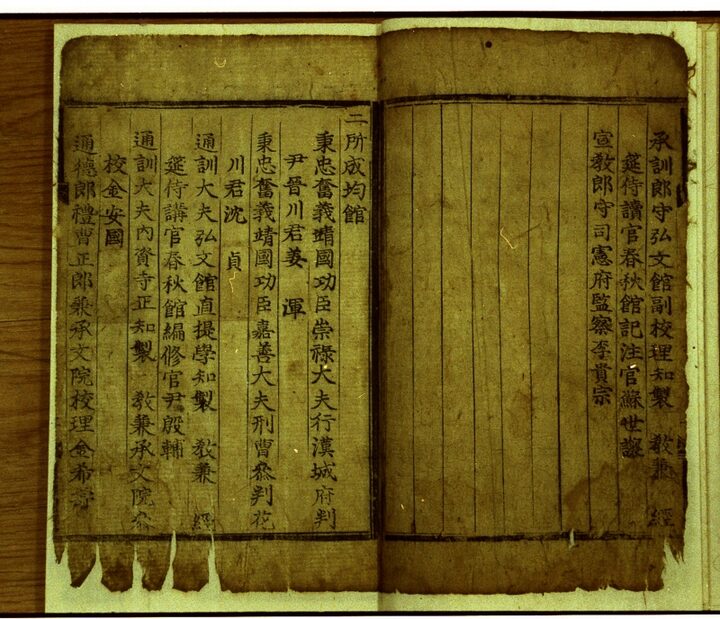 承訓郎守弘文館副校理知製 敎兼 經
筵侍讀官春秋館記注官蘇世讓
宣敎郎守司憲府監察李貴宗
二所成均館
秉忠奮義靖國功臣崇祿大夫行漢城府判
尹晉川君姜 渾
秉忠奮義靖國功臣嘉善大夫刑曹叅判花
川君沈 貞
通訓大夫弘文館直提學知製 敎兼 經
筵侍講官春秋館編修官尹殷輔
通訓大夫內資寺正知製 敎兼承文院叅
校金安國
通德郎禮曹正郎兼承文院校理金希壽